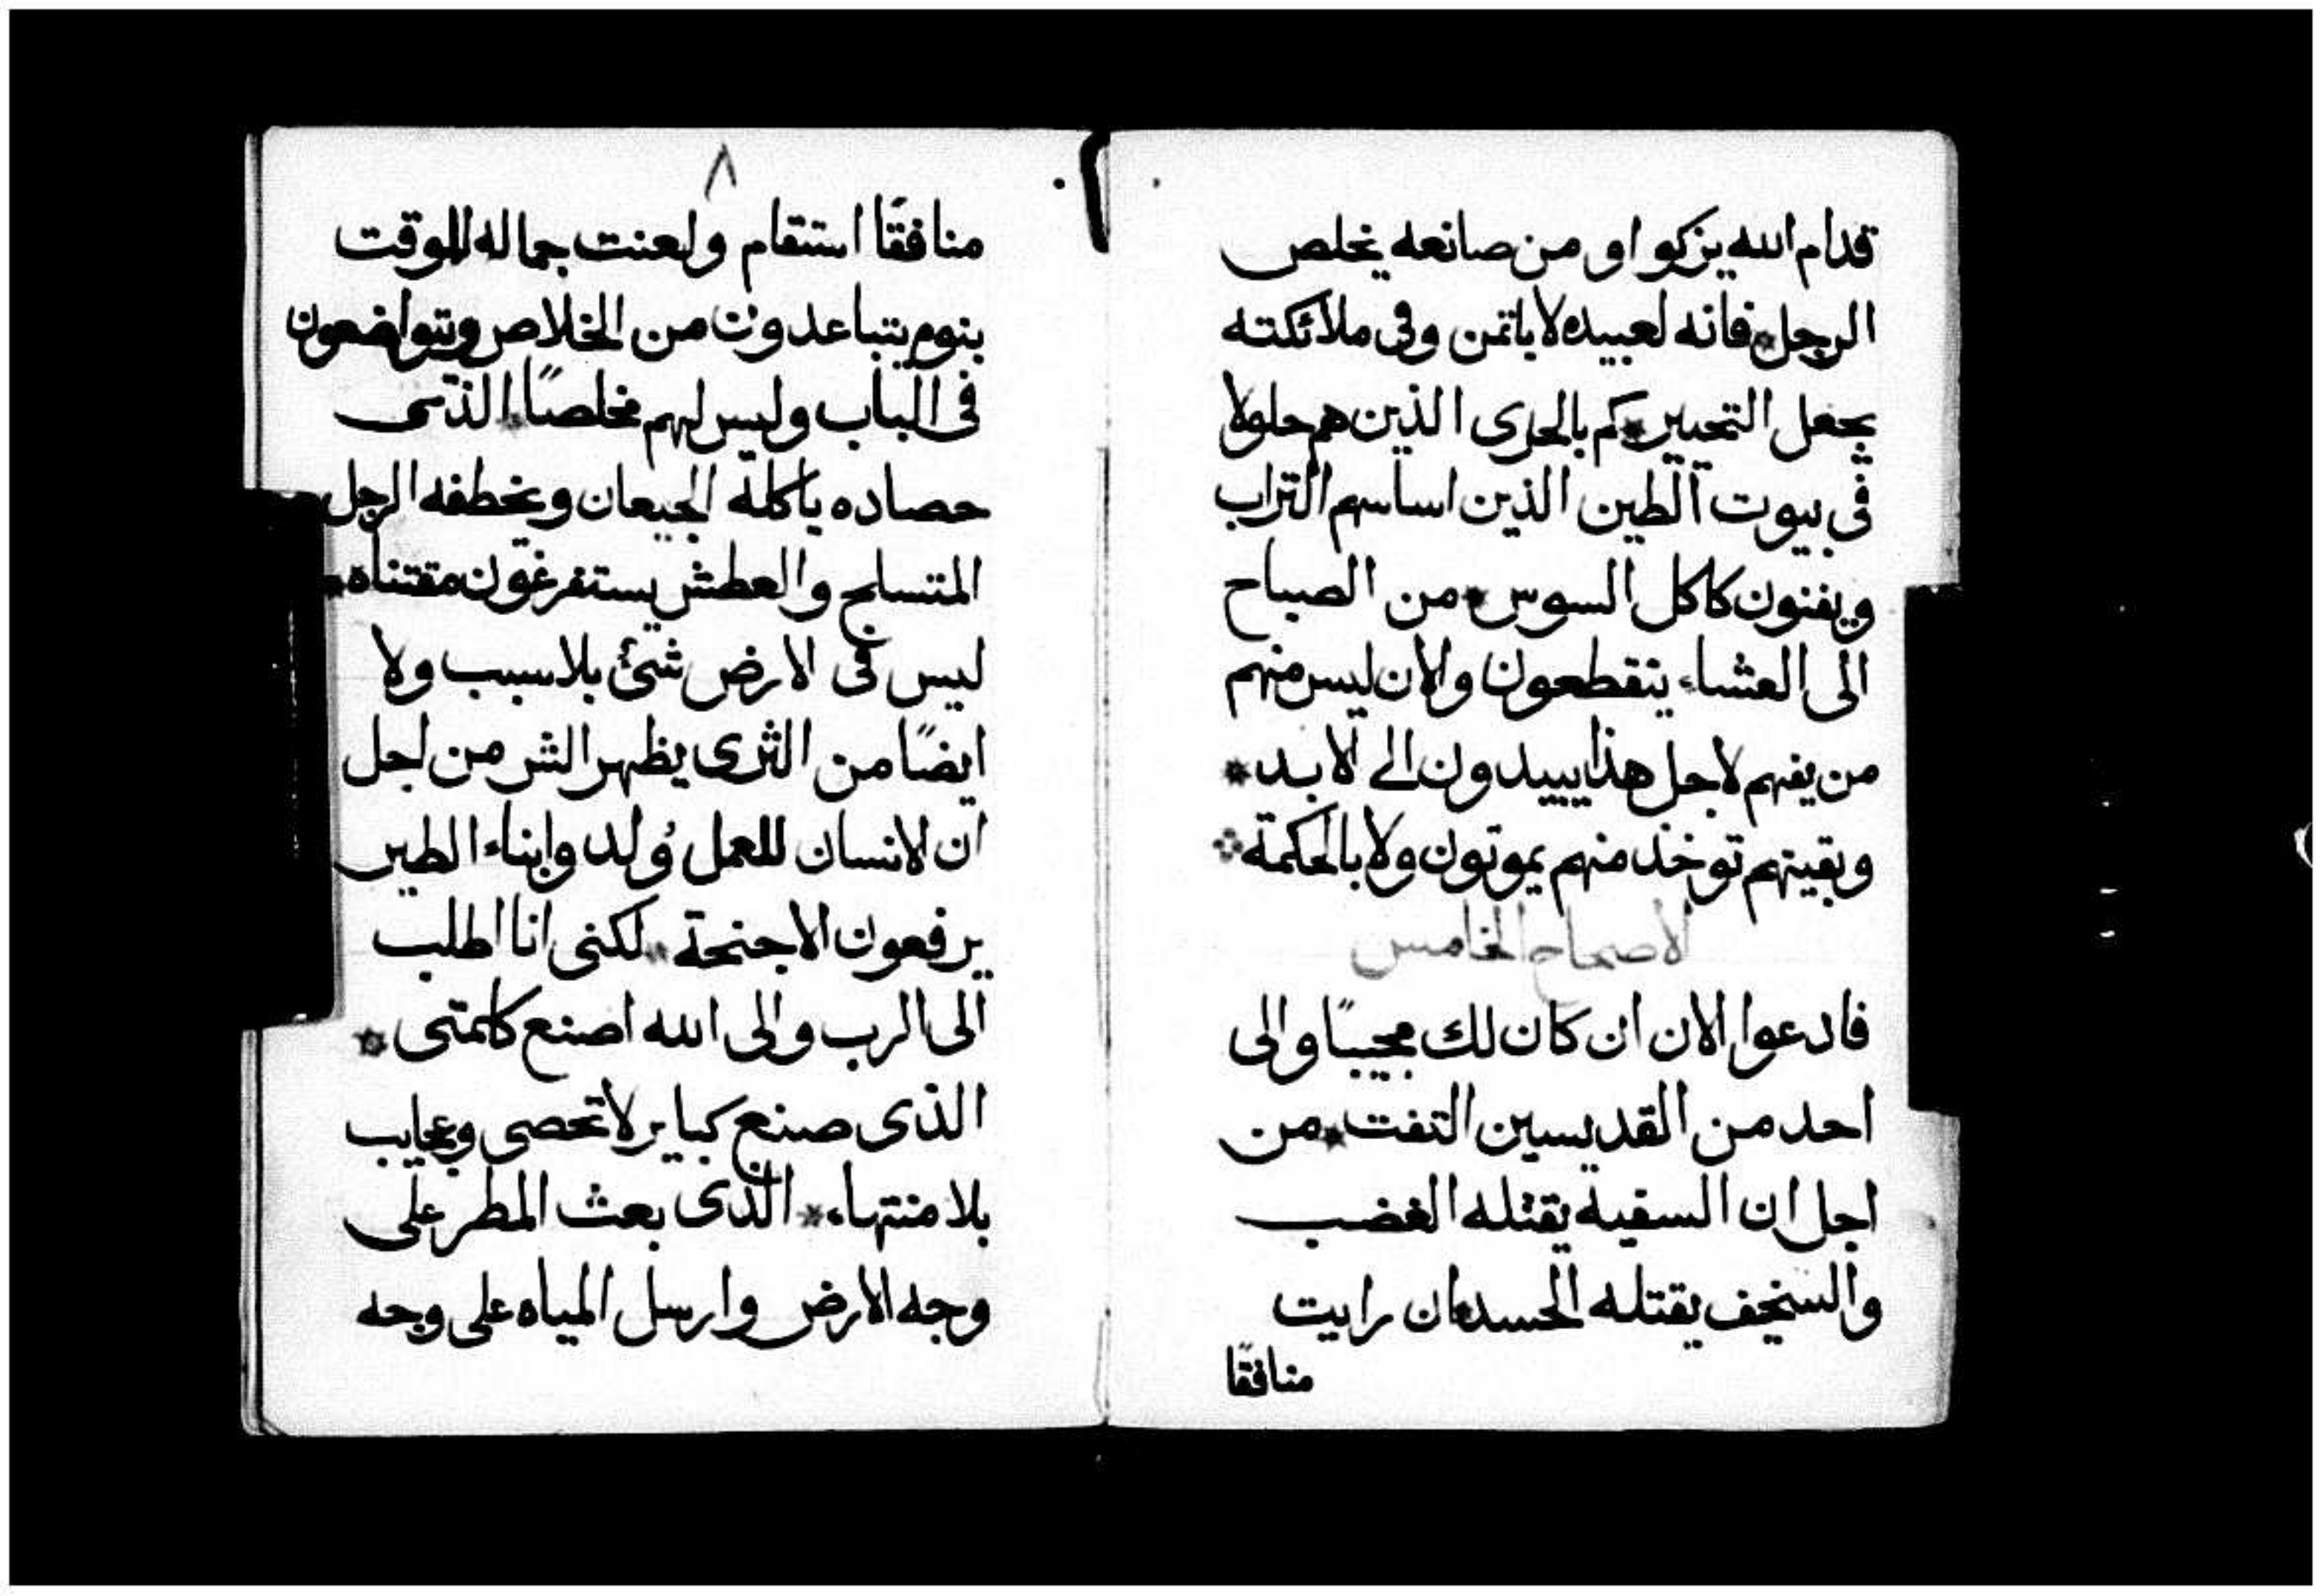 قدام الله يزكو او من صانعه يخلص
الرجل * فانه لعبيده لا ياتمن وفى ملائكته
يجعل التحيير * كم بالحرى الذين هم حلولا
فى بيوت الطين الذين اساسهم التراب
ويفنون كاكل السوس * من الصباح
الى العشاء ينقطعون والان ليس منهم
من يفهم لاجل هذا يبيدون الى الابد *
وبقيتهم توخذ منهم يموتون ولا بالحكمة
الاصحاح الخامس
فادعوا الان ان كان لك مجيبًا والى
احد من القديسين التفت * من
اجل ان السفيه يقتله الغضب
والسخيف يقتله الحسد * ان رايت
منافقًا
٨
منافقًا استقام ولعنت جماله للوقت
بنوه يتباعدون من الخلاص ويتواضعون
فى الباب وليس لهم مخلصًا * الذى
حصاده ياكله الجيعان ويخطفه الرجل
المتسلح والعطش يستفرغون مقتناه *
ليس فى الارض شئ بلا سبب ولا
ايضًا من الثرى يظهر الشر من اجل
ان الانسان للعمل وُلد وابناء الطير
يرفعون الاجنحة * لكنى انا اطلب
الى الرب والى الله اصنع كلمتى *
الذى صنع كباير لا تحصى وعجايب
بلا منتهاء * الذى بعث المطر على
وجه الارض وارسل المياه على وجه